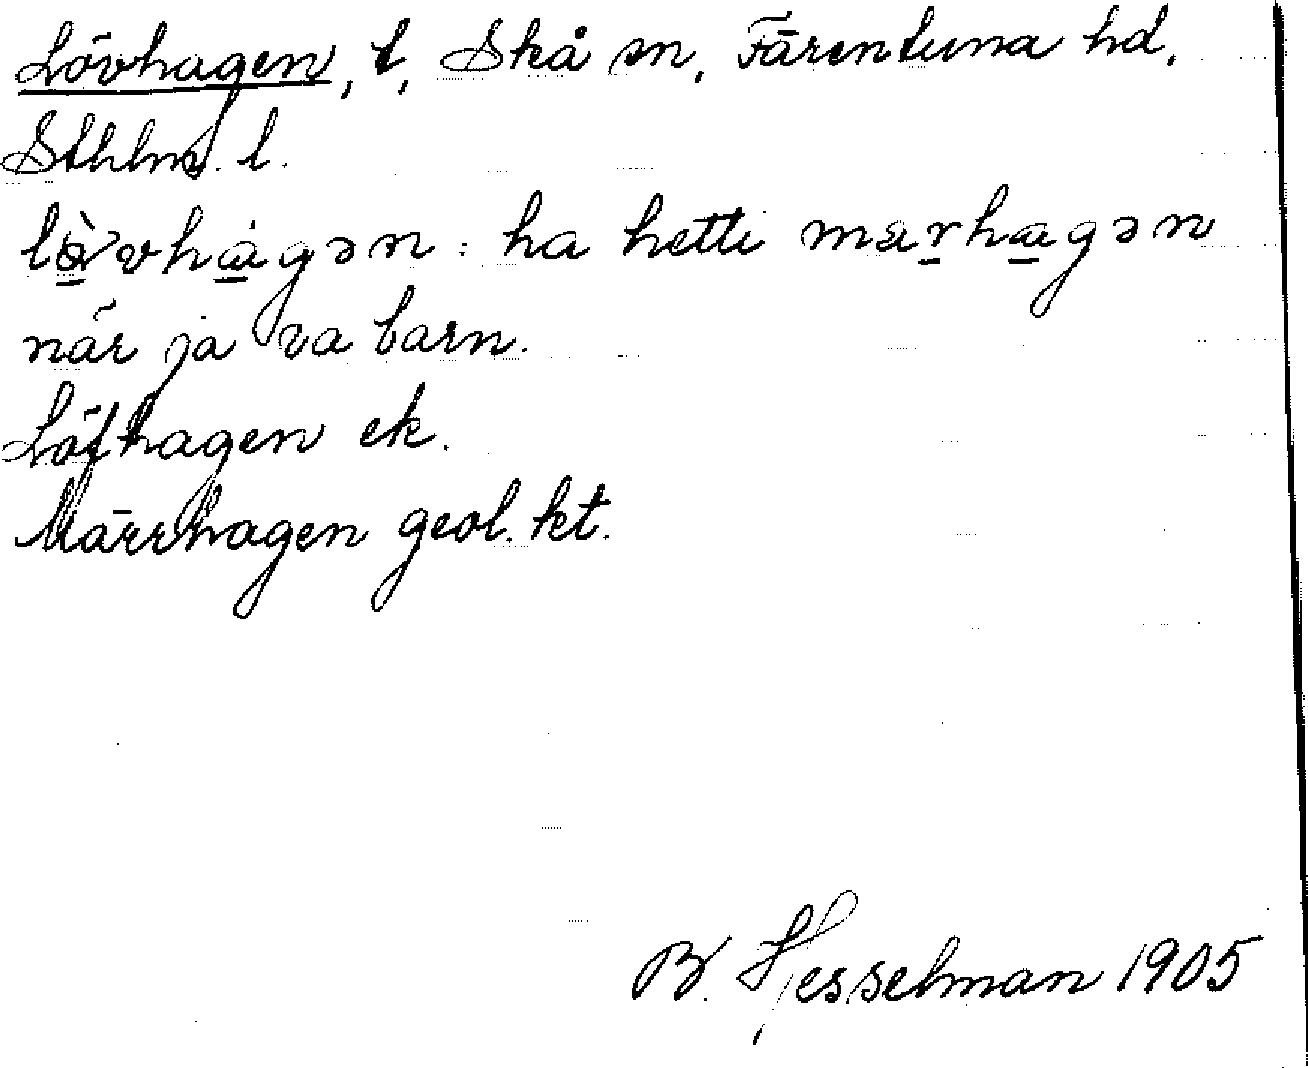 Lövhagen, t, Skå sn, Färentuna hd,
Sthlms l.
lø̀vhágən: ha hetti mærhagən
när ja va barn.
Löfhagen ek.
Märrhagen geol. kt.
B. Hesselman 1905